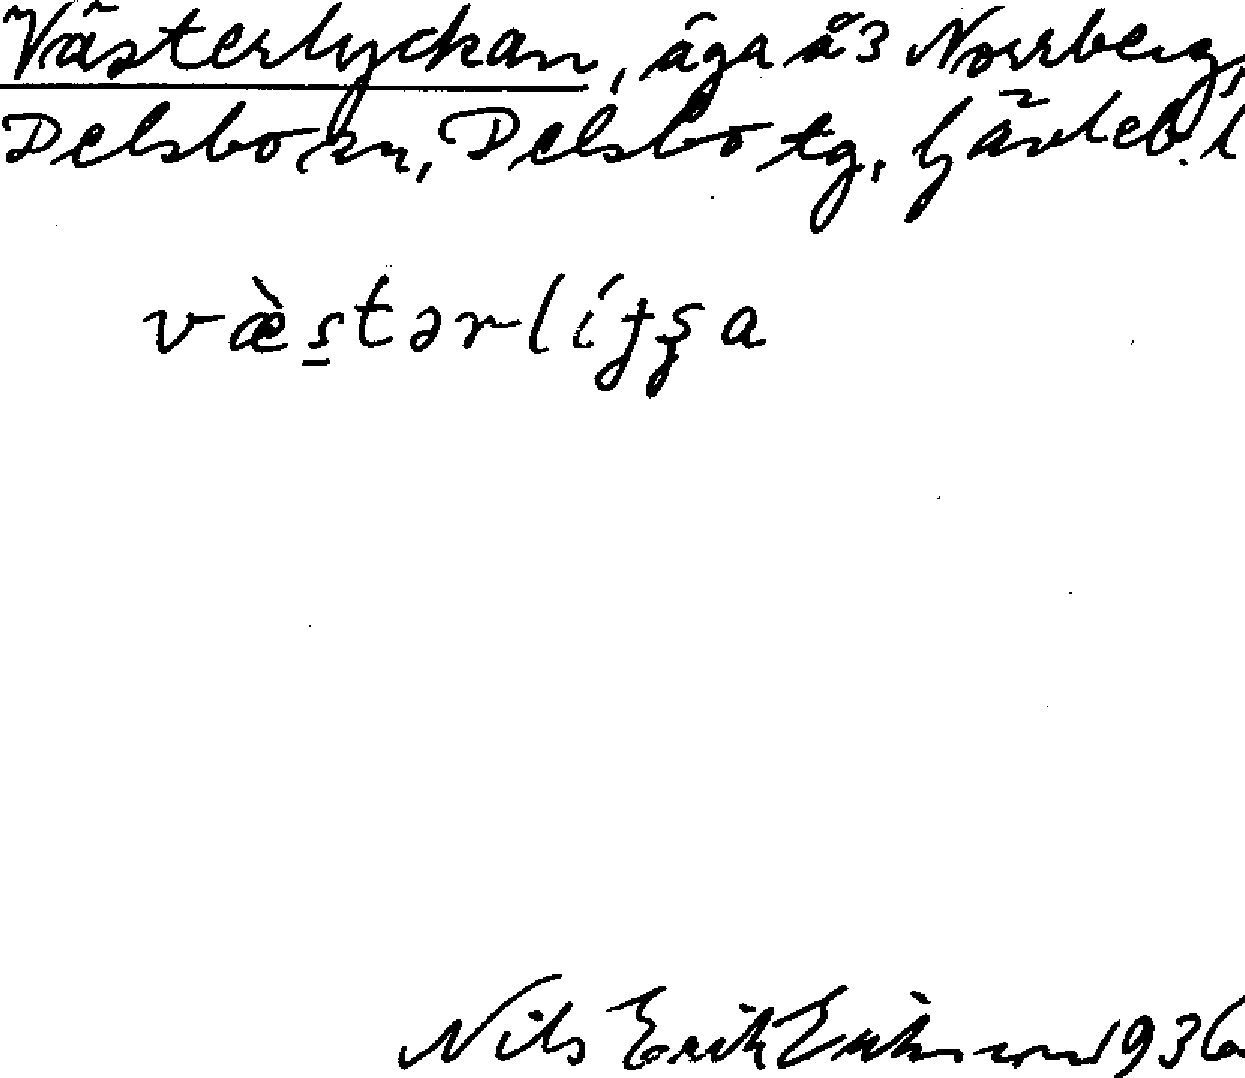 Västerlyckan, äga å 3 Norrberg,
Delsbo sn, Delsbo tg, Gävleb. l
væ̀s̱tərlíɟʂa
Nils Erik Eriksson 1936